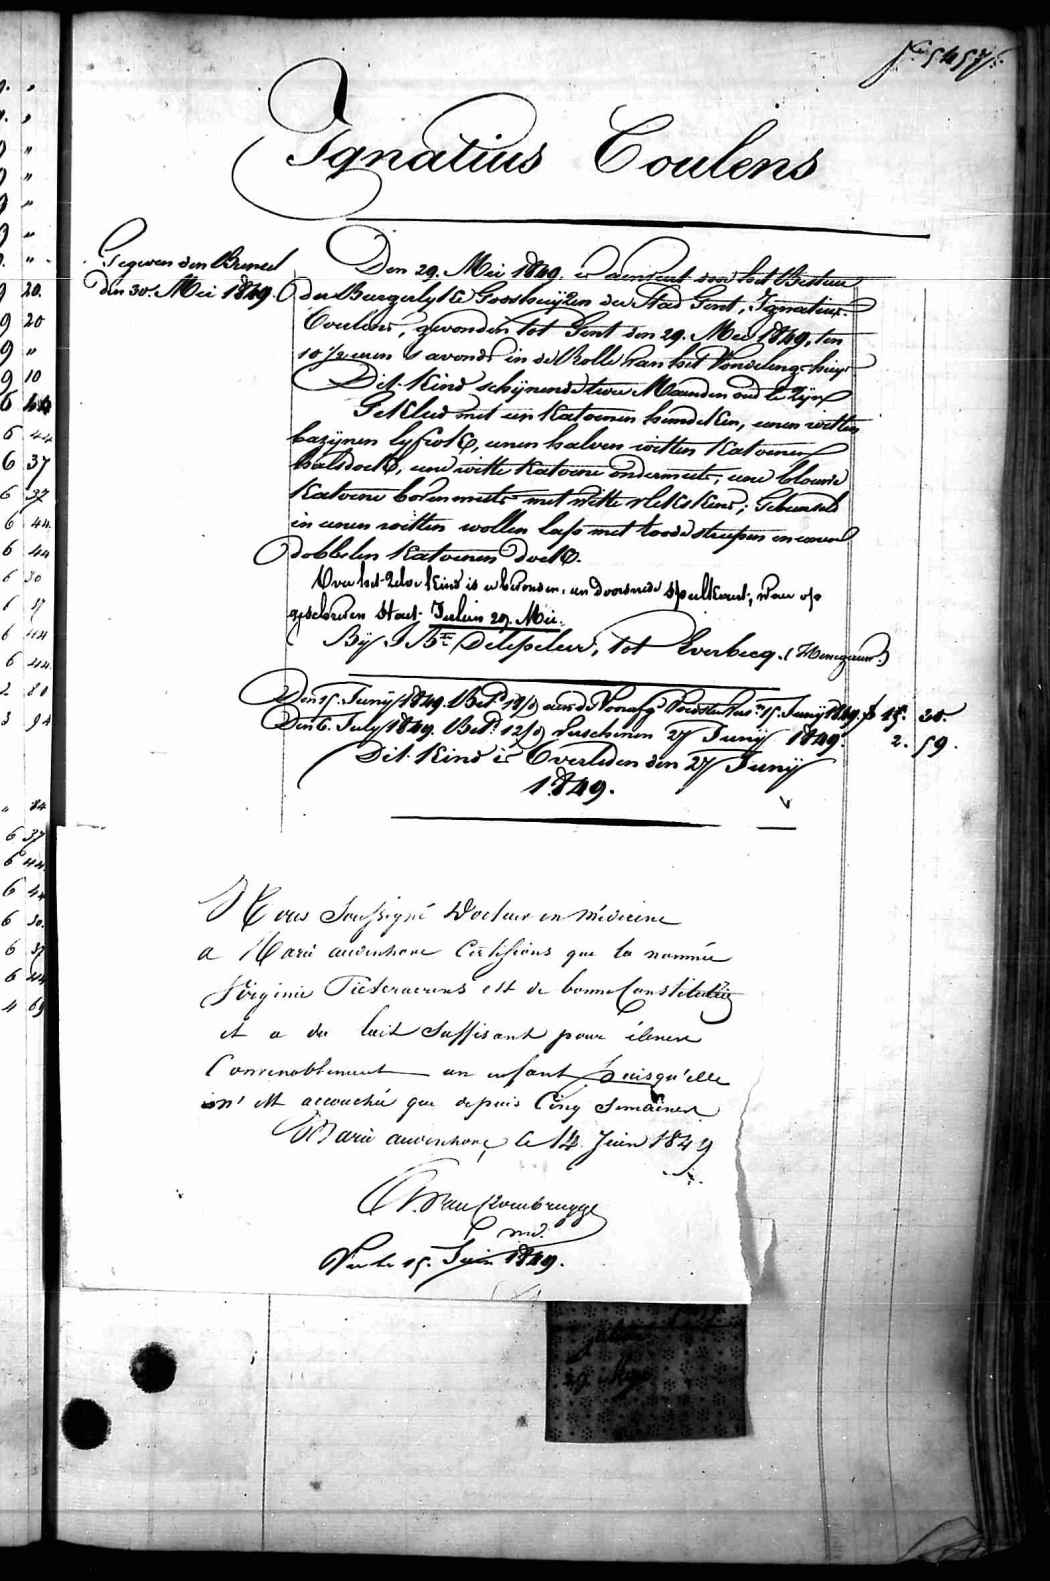 Ignatius Coulens
Gegeven den Brevet
den 30. Mei 1849.
Den 29. Mei 1849. is aenveert door het Bestuur
der Burgerlyke Godshuijzen der Stad Gent, Ignatius
Coulens, gevonden tot Gent den 29. Mei 1849, ten
10 1/2 uren s'avonds in de Rolle van het Vondeling-huys
Dit Kind schynende twee Maanden oud te zijn
Gekleed met een Katoenen hemdeken, eenen witten
bazijnen lyfrok, eenen halven witten Katoenen
halsdoek, eene witte Katoene ondermuts, eene blauwe
Katoene bovenmuts met witte vlekskens; Gebunseld
in eenen witten wollen laps met roode streepen en eenen
dobbelen Katoenen doek.
Over het zelve Kind is er bevonden, een doorsnede Speelkaert, waer op
geschreven Staet: Julien 29. Mei.
Bij J. Bte Delepeleer, tot Everbecq. (Henegauw.)
Den 15. Junij 1849. Betd. aen de Voorafg. 15. Junij 1849. f 15. 30.
Den 6. July 1849. Betd. 12/ Verschenen 27 Junij 1849. 2. 59.
Dit Kind is Overleden den 27 Junij
1849.
Nous Soussigné Docteur en médecine
a Marie audenhove Certifions que la nommée
Virginie est de bonne Constitution
et a du lait Suffisant pour élever
Convenablement un enfant puisqu'elle
n'est accouchée que depuis Cinq Semaines
Marie audenhove, le 14 Juin 1849
Van Rombrugge
md.
Vu le 15. Juin 1849.
29 Mei
9 20.
9 20
9 "
9 10
6 44
6 37
6 37
6 44
6 44
6 30
6 37
6 44
6 44
2 80
3 94
" 84
6 37
6 44
6 44
6 30.
6 37
6 44
4 69